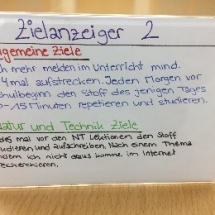 Zielanzeiger 2
lgemeine Ziele
ch mehr melden im Unterricht mind.
4 mal aufstrecken. Jeden Morgen vor
hulbeginn den Stoff des jenigen Tages
-15 Minuten repetieren und studieren.
atur und Technik Ziele
des mal vor den NT Lektionen den Stoff
udieren und aufschreiben. Nach einem Thema
ich nicht draus komme im Internet
echerchieren.